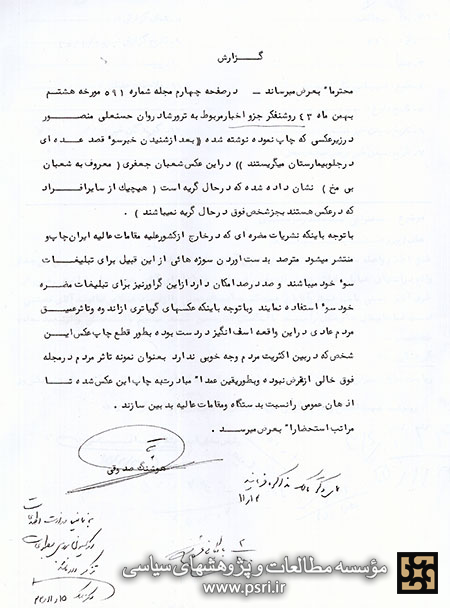 گـــزارش
محترما" بعرض میرساند - درصفحه چهارم مجله شماره ۵۹۱ مورخه هشتم
بهمن ماه ۴۳ روشنفکر جزو اخبار مربوط به ترورشاد روان حسنعلی منصور
درزیرعکسی که چاپ نموده نوشته شده (( بعد ازشنیدن خبرسو' قصد عده ای
درجلوبیمارستان میگریستند )) دراین عکس شعبان جعفری ( معروف به شعبان
بی مخ ) نشان داده شده که درحال گریه است ( هیچیک از سایرافراد
که درعکس هستند بجزشخص فوق درحال گریه نمیباشند ) .
باتوجه باینکه نشریات مضره ای که درخارج ازکشورعلیه مقامات عالیه ایران چاپ و
منتشر میشود مترصد بدست اوردن سوژه هائی از این قبیل برای تبلیغات
سو' خود میباشند و صد درصد امکان دارد ازاین گراورنیز برای تبلیغات مضره
خود سو' استفاده نمایند وباتوجه باینکه عکسهای گویاتری ازاندوه وتاثرعمیق
مردم عادی دراین واقعه اسف انگیز دردست بوده بطور قطع چاپ عکس این
شخص که دربین اکثریت مردم وجه خوبی ندارد بعنوان نمونه تاثر مردم درمجله
فوق خالی ازغرض نبوده وبطوریقین عمدا" مبادرت به چاپ این عکس شده تا
اذهان عمومی رانسبت بدستگاه ومقامات عالیه بدبین سازند .
مراتب استحضارا" بعرض میرسد .
هوشنگ صدوقی
۱۱/۱۲
۴۳/۱۱/۱۵
مؤسسه مطالعات و پژوهشهای سیاسی
www.psri.ir